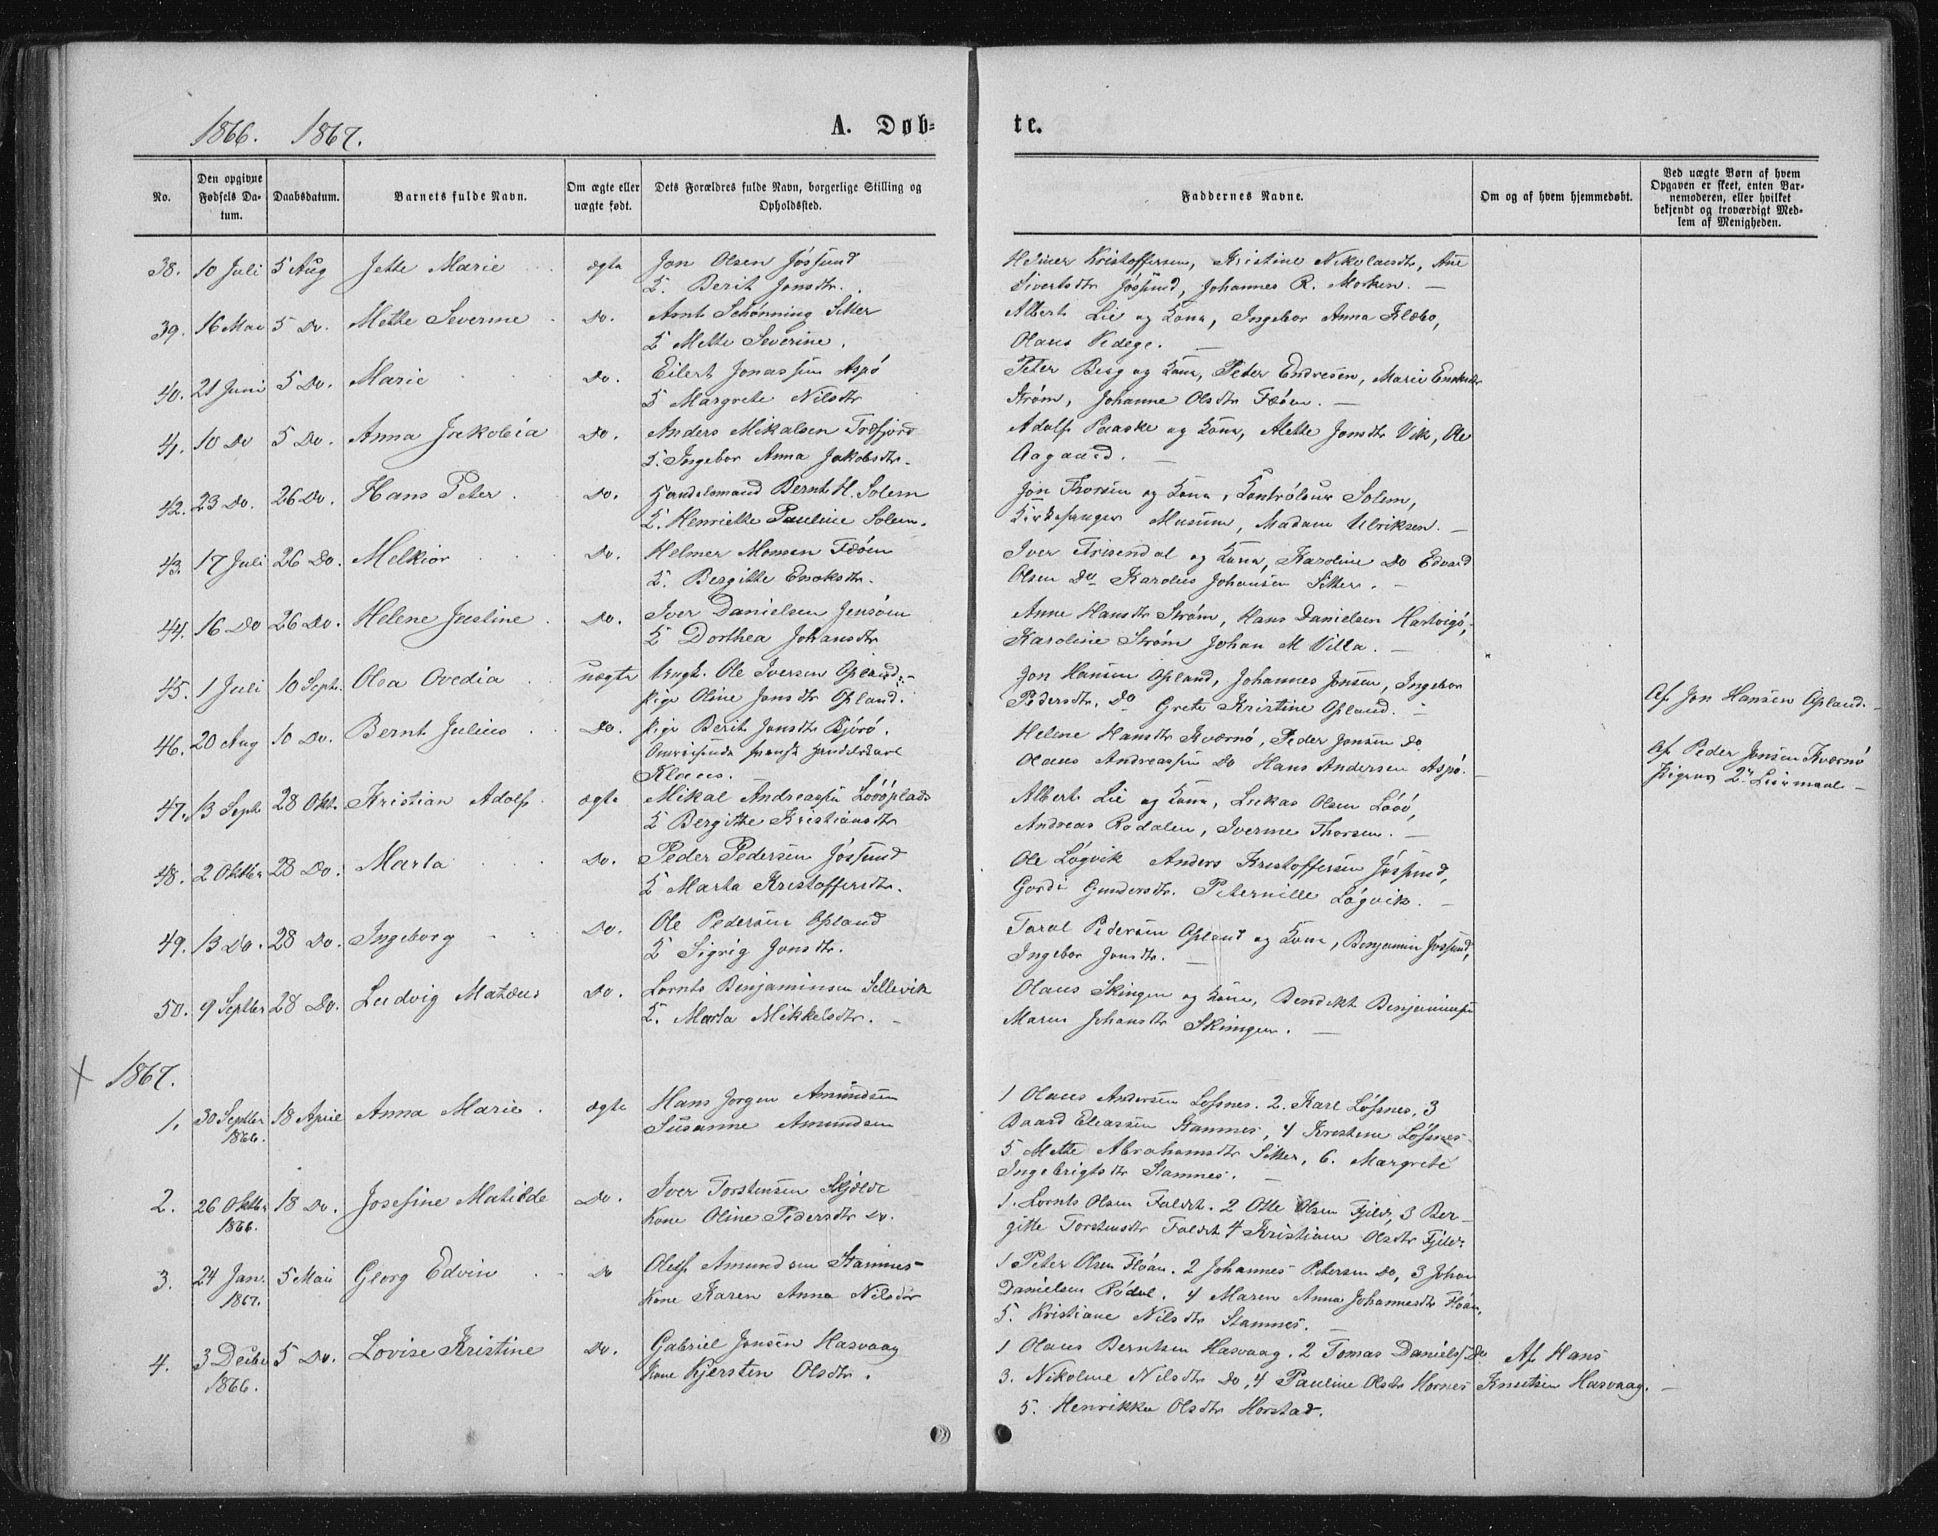 1866. 1867.
A. Døb-
te.
No.
Den opgivne Fødsels Datum.
Daabsdatum.
Barnets fulde Navn.
Om ægte eller uægte født.
Dets Forældres fulde Navn, borgerlige Stilling og Opholdssted.
Faddernes Navne.
Om og af hvem hjemmedøbt.
Ved uægte Børn af hvem Opgaven er skeet, enten Barnemoderen, eller hvilket bekjendt og troværdigt Medlem af Menigheden.
38. 10 Juli 5 Aug Jette Marie ægte Jon Olsen Jøssund
K. Berit Jonsdtr.
Helmer Kristoffersen, Kristine Nikolausdtr, Ane
Sivertsdtr Jøssund, Johannes R. Morken. —
39. 16 Mai 5 Do. Mette Severine Do. Arnt Schønning Sitter
K Mette Severine.
Albert Lie og Kone, Ingebor Anna Klæbo,
Olaus Vedege. —
40. 21 Juni 5 Do. Marie Do. Eilert Jonassen Aspø
K Margrete Nilsdtr
Peter Berg og Kone, Peder Endresen, Marie
Strøm, Johanne Olsdtr Fæøen. —
41. 10 Do 5 Do. Anna Jakobia Do. Anders Mikalsen Træfjord
K. Ingebor Anna Jakobsdtr.
Adolf Paaske og Kone, Alette Jonsdtr Vik, Ole
Aagaard. —
42. 23 Do. 26 Do. Hans Peter Do. Handelsmand Bernt H. Solem
K. Henriette Pauline Solem.
Jon Thorsen og Kone, Kontrolleur Solem,
Kirkesanger Musum, Madam Ulriksen. —
43. 17 Juli 26 Do. Melkior Do. Helmer Monsen Fæøen
K. Bergitte Enoksdtr.
Iver Frisendal og Kone, Karoline Do Edvard
Olsen Do Karolius Johansen Sitter. —
44. 16 Do 26 Do. Helene Justine Do. Iver Danielsen Jensøen
K Dorthea Johansdtr
Anne Hansdtr Strøm, Hans Danielsen Hartvigø,
Karoline Strøm Johan M Villa. —
45. 1 Juli 10 Sept. Olea Ovedia uægte Ungk. Ole Iversen Opland:-
Pige Oline Jonsdtr Opland.
Jon Hansen Opland, Johannes Jonsen, Ingebor
Pedersdtr. Do Grete Kristine Opland. —
Af Jon Hansen Opland. —
46. 20 Aug 10 Do. Bernt Julius Do. Pige Berit Jonsdtr Bjørø.
Omreisende svensk Handelskarl
Klaus.
Heline Hansdtr Kværnø, Peder Jonsen Do
Olaus Andreassen Do Hans Andersen Aspø.
Af Peder Jonsen Kværnø
Pigens 2det Leiermaal —
47. 13 Septb 28 Okt. Kristian Adolf. ægte Mikal Andreassen Løvøplads
K Bergitte Kristiansdtr
Albert Lie og Kone, Lukas Olsen Løvø,
Andreas Rødalen, Iverine Thorsen. —
48. 2 Oktbr 28 Do. Marta Do. Peder Pedersen Jøssund
K Marta Kristoffersdtr.
Ole Løgvik Anders Kristoffersen Jøssund,
Gordi Gundersdtr. Peternille Løgvik. —
49. 13 Do. 28 Do. Ingeborg Do. Ole Pedersen Opland
K Sigrig Jonsdtr.
Taral Pedersen Opland og Kone, Benjamin Jøssund,
Ingebor Jonsdtr. —
50. 9 Septbr 28 Do. Ludvig Matæus Do. Lornts Benjaminsen Sellevik
K. Marta Mikkelsdtr. —
Olaus Skingen og Kone, Bendikt Benjaminsen
Maren Johansdtr Skingen. —
1867.
1. 30 Septbr 1866. 18 April Anna Marie. ægte Hans Jørgen Amundsen
Susanne Amundsen
1 Olaus Andersen Løfsnes. 2. Karl Løfsnes, 3
Baard Eliassen Stamnes, 4 Kristine Løfsnes
5 Mette Abrahamsdtr Sitter, 6. Margrete
Ingebrigtsdtr Stamnes. —
2. 26 Oktbr 1866. 18 Do. Josefine Matilde Do. Iver Torstensen Skjelde
Kone Oline Pedersdtr Do.
1. Lornts Olsen Faldet. 2 Otte Olsen Fjeld, 3 Ber-
gitte Torstensdtr Faldet 4 Kristiane Olsdtr Fjeld.
3. 24 Jan. 1867. 5 Mai Georg Edvin Do Oluf Amundsen Stamnes-
Kone Karen Anna Nilsdtr
1 Peter Olsen Floan. 2 Johannes Petersen Do, 3 Johan
Danielsen Rødal. 4 Maren Anna Johannesdtr Floan,
5. Kristiane Nilsdtr Stamnes. —
4. 3 Decbr 1866. 5 Do. Lovise Kristine Do. Gabriel Jonsen Hasvaag
Kone Kjersten Olsdtr.
1 Olaus Berntsen Hasvaag. 2 Tomas Daniels. Do
3. Nikoline Nilsdtr Do, 4 Pauline Olsdtr Hornes
5. Henrikke Olsdtr Horstad.
Af Hans
Knutsen Hasvaag. —